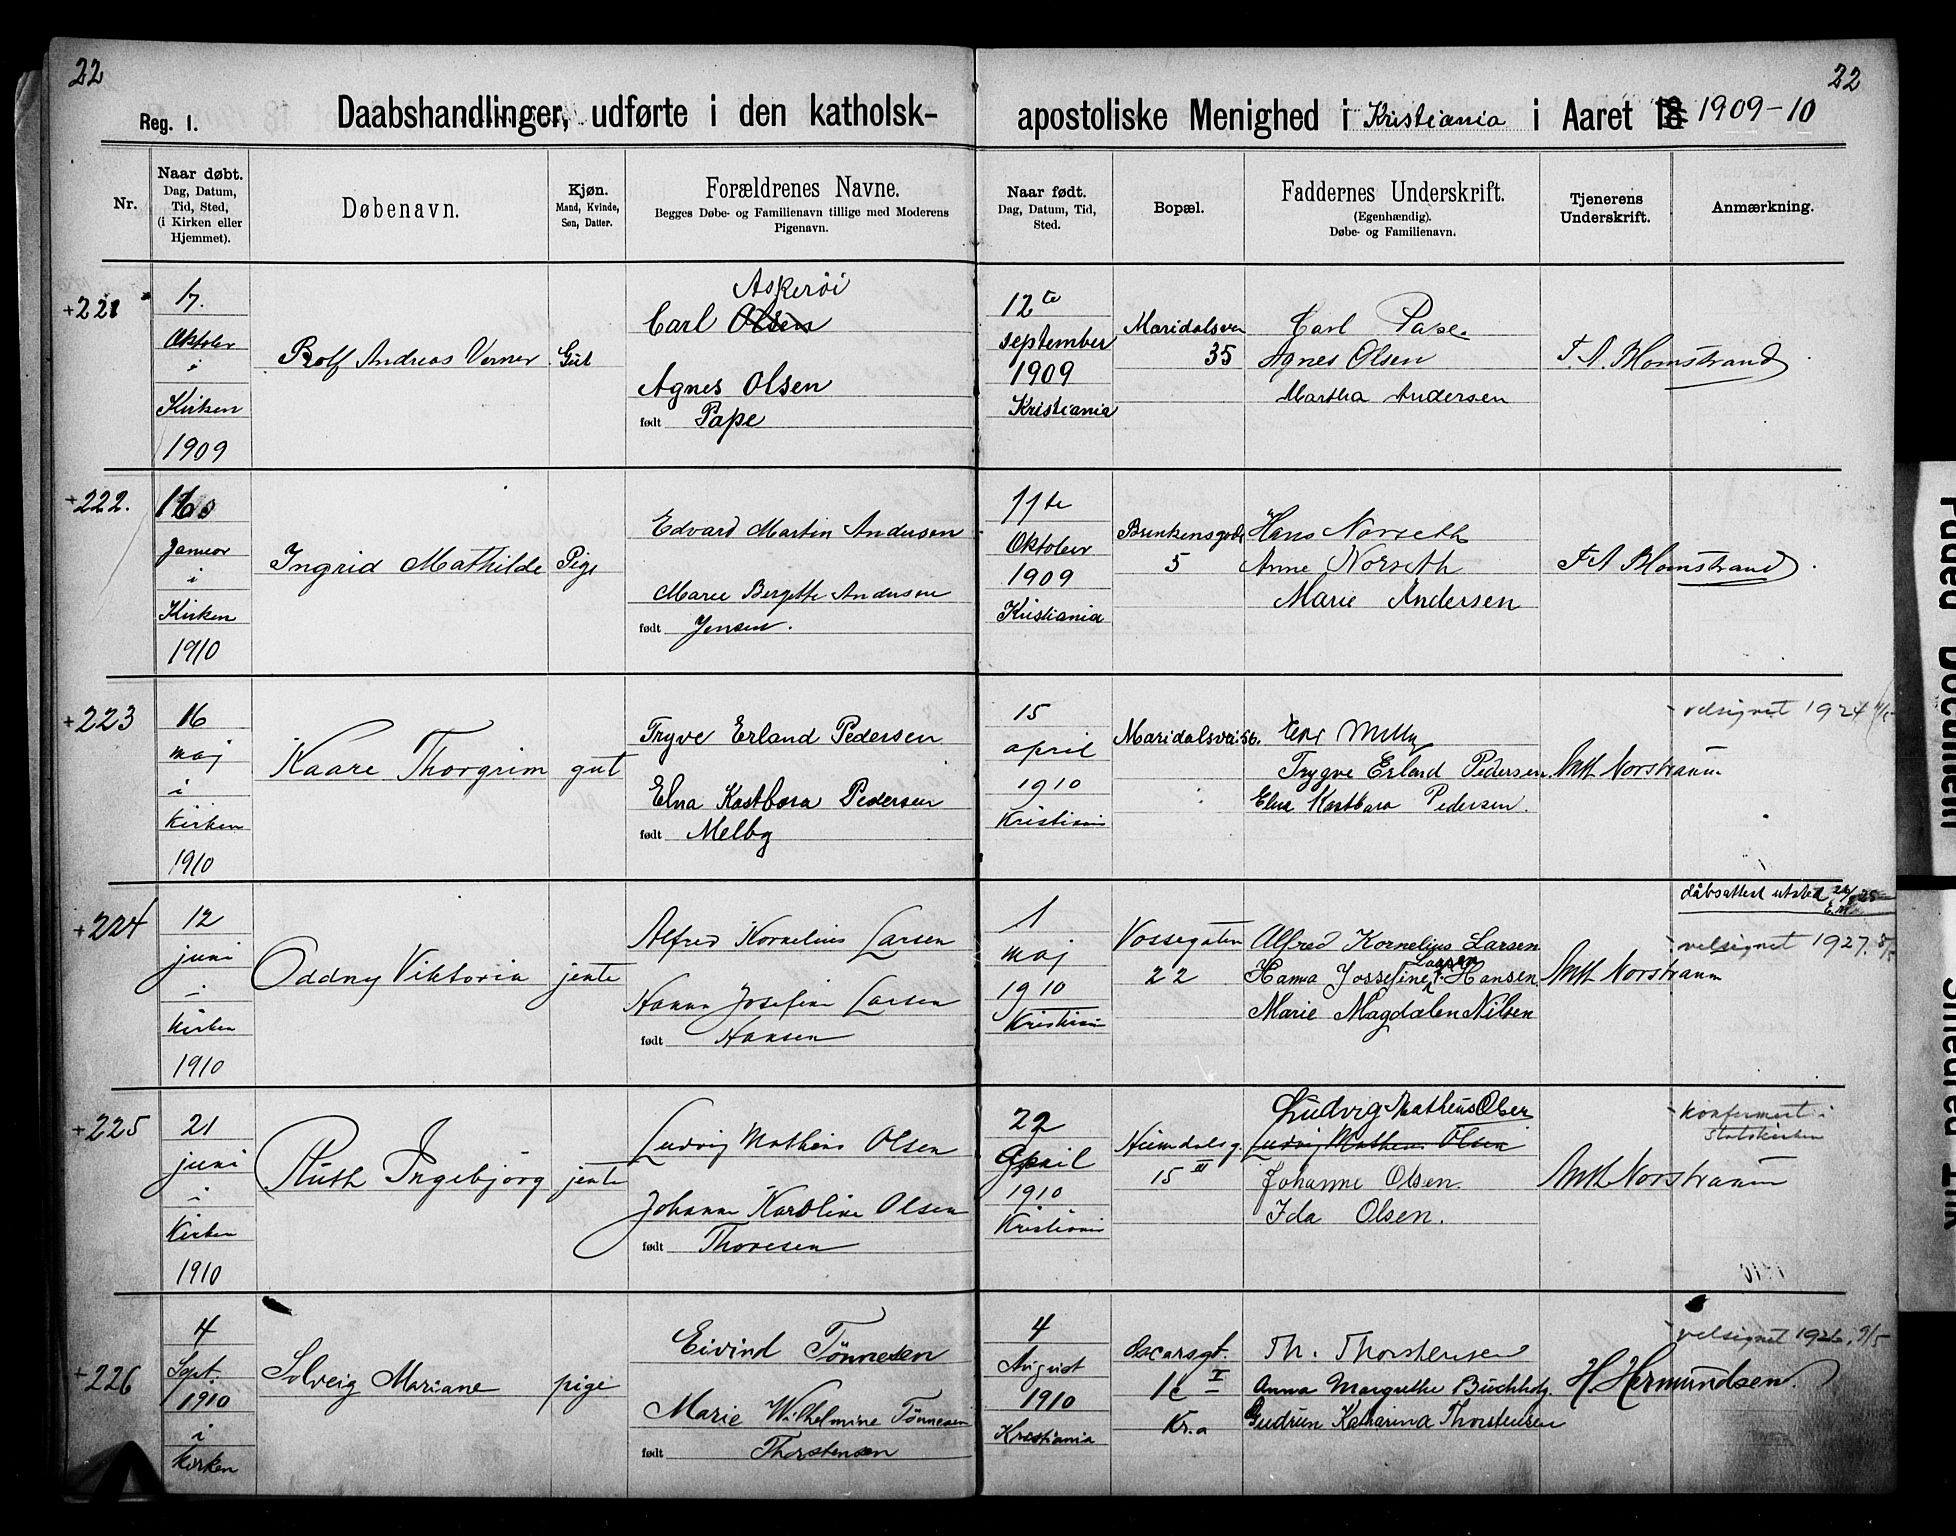 22
22
Reg. 1.
Daabshandlinger, udførte i den katholsk-
apostoliske Menighed i Kristiania i Aaret 18 1909-10
Nr.
Naar døbt.
Dag, Datum,
Tid, Sted,
(i Kirken eller
Hjemmet).
Døbenavn.
Kjøn.
Mand, Kvinde,
Søn, Datter.
Forældrenes Navne.
Begges Døbe- og Familienavn tillige med Moderens
Pigenavn.
Naar født.
Dag, Datum, Tid,
Sted.
Bopæl.
Faddernes Underskrift.
(Egenhændig).
Døbe- og Familienavn.
Tjenerens
Underskrift.
Anmærkning.
+221
17.
Oktober
i
Kirken
1909
Rolf Andreas Verner
Gut
Askerøi
Carl Olsen
Agnes Olsen
født Pape
12te
september
1909
Kristiania
Maridalsvei
35
Carl Pape
Agnes Olsen
Martha Andersen
F. A. Blomstrand
+222.
16
Januar
i
Kirken
1910
Ingrid Mathilde
Pige
Edvard Martin Andersen
Marie Bergette Andersen
født Jensen.
11te
Oktober
1909
Kristiania
5
Hans Norseth
Anne Norseth
Marie Andersen
F A Blomstrand
+223
16
maj
i
Kirken
1910
Kaare Thorgrim
gut
Trygve Erland Pedersen
Elna Kastbora Pedersen
født Melby
15
april
1910
Kristiania
Maridalsvei 56.
Trygve Erland Pedersen
Elna Kastbara Pedersen.
Anth Norstraum
- velsignet 1924
+224
12
juni
i
Kirken
1910
Oddny Viktoria
jente
Alfred Kornelius Larsen
Hanna Josefine Larsen
født Hansen
1
maj
1910
Kristiania
Vossegaten
22
Alfred Kornelius Larsen
Larsen
Hanna Jossefine f. Hansen
Marie Magdalen Nilsen
Anth Norstraum
dåbsattest utsted
- velsignet 1927.
+225
21
juni
i
Kirken
1910
Ruth Ingebjørg
jente
Ludvig Matheus Olsen
Johanne Karoline Olsen
født Thoresen
22
April
1910
Kristiania
Heimdalsg.
15 III
Ludvig Matheus Olsen
Ludvig Matheus Olsen
Johanne Olsen.
Ida Olsen.
Anth Norstraum
- konfirmert i
statskirken
+226
4
Sept.
1910
i
Kirken
Solveig Mariane
pige
Eivind Tønnesen
Marie Wilhelmine Tønnesen
født Thorstensen
4
August
1910
Kristiania
Oscarsgt.
1c I
Kr.a
Th. Thorstensen
Anna Margrethe Buchholz
Gudrun Katharina Thorstensen
H. Hermundsen.
- velsignet 1926, 9/5